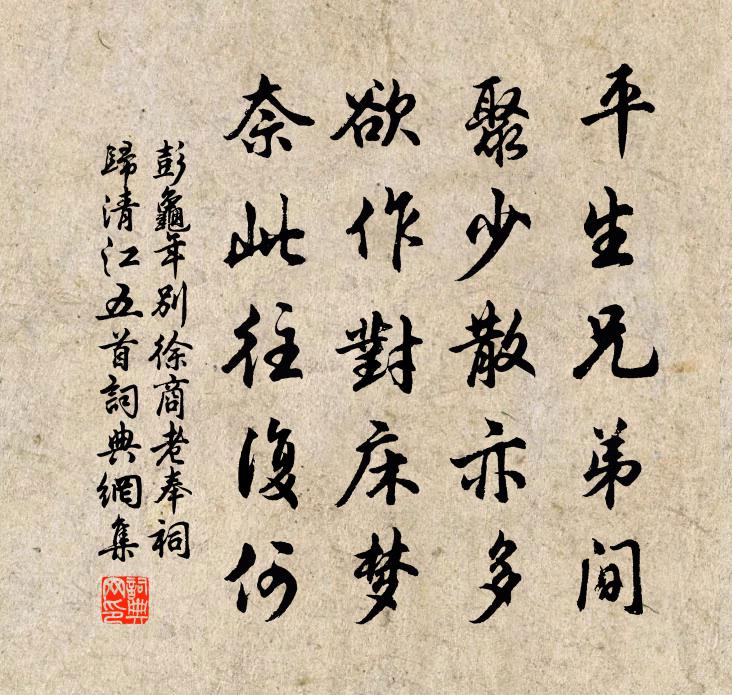 平生兄弟间
聚少散亦多
欲作對床梦
奈此往復何
彭龜年别徐商老奉祠
歸清江五首詞典網集
詞典
网印